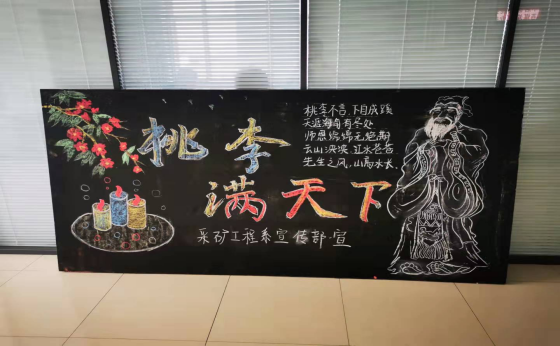 桃李不言,下自成蹊
天涯海角有尽处
师恩绵绵无绝期
云山泱泱,江水苍苍
先生之风,山高水长.
桃李
满天下
采矿工程系宣传部·宣